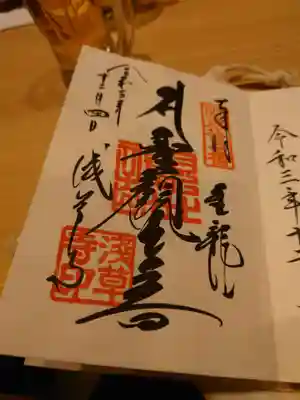 令和三年十二
奉拝
金龍山
聖観世音
浅草寺
令和三年
十二月四日
浅草寺印